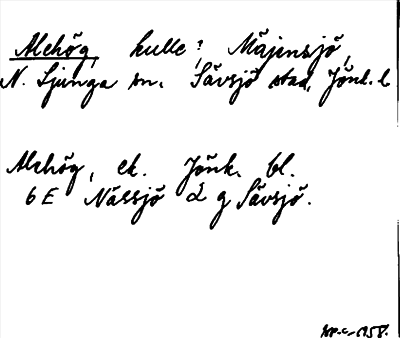 Alehög, kulle? Mäjensjö,
N. Ljunga sn. Sävsjö stad, Jönk. l
Alehög, ek. Jönk. bl.
6 E Nässjö d g Sävsjö.
1958.